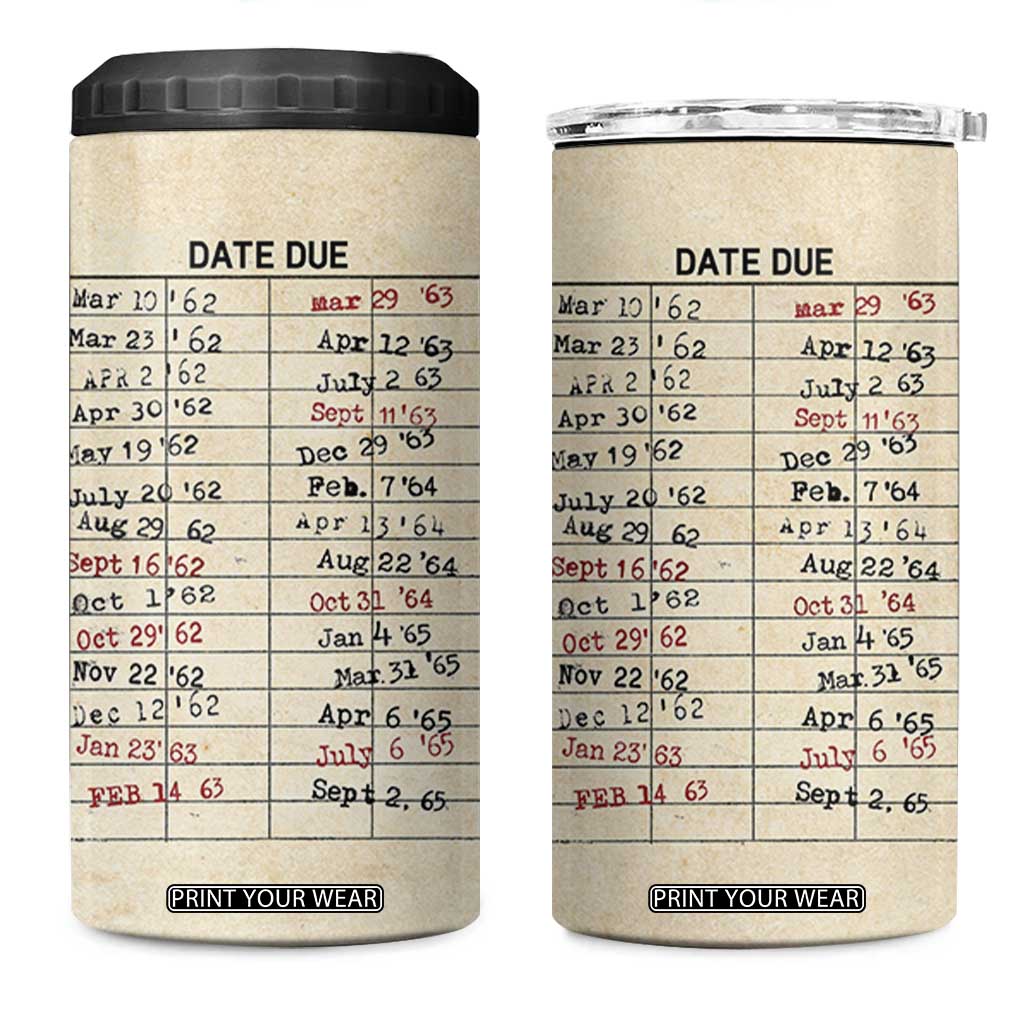 DATE DUE
Mar 10 '62 Mar 29 '63
Mar 23 '62 Apr 12 '63
APR 2 '62 July 2 63
Apr 30 '62 Sept 11 '63
May 19 '62 Dec 29 '63
July 20 '62 Feb. 7 '64
Aug 29 62 Apr 13 '64
Sept 16 '62 Aug 22 '64
Oct 1 '62 Oct 31 '64
Oct 29' 62 Jan 4 '65
Nov 22 '62 Mar. 31 '65
Dec 12 '62 Apr 6 '65
Jan 23' 63 July 6 '65
FEB 14 63 Sept 2, 65
PRINT YOUR WEAR
DATE DUE
Mar 10 '62 Mar 29 '63
Mar 23 '62 Apr 12 '63
APR 2 '62 July 2 63
Apr 30 '62 Sept 11 '63
May 19 '62 Dec 29 '63
July 20 '62 Feb. 7 '64
Aug 29 62 Apr 13 '64
Sept 16 '62 Aug 22 '64
Oct 1 '62 Oct 31 '64
Oct 29' 62 Jan 4 '65
Nov 22 '62 Mar. 31 '65
Dec 12 '62 Apr 6 '65
Jan 23' 63 July 6 '65
FEB 14 63 Sept 2, 65
PRINT YOUR WEAR